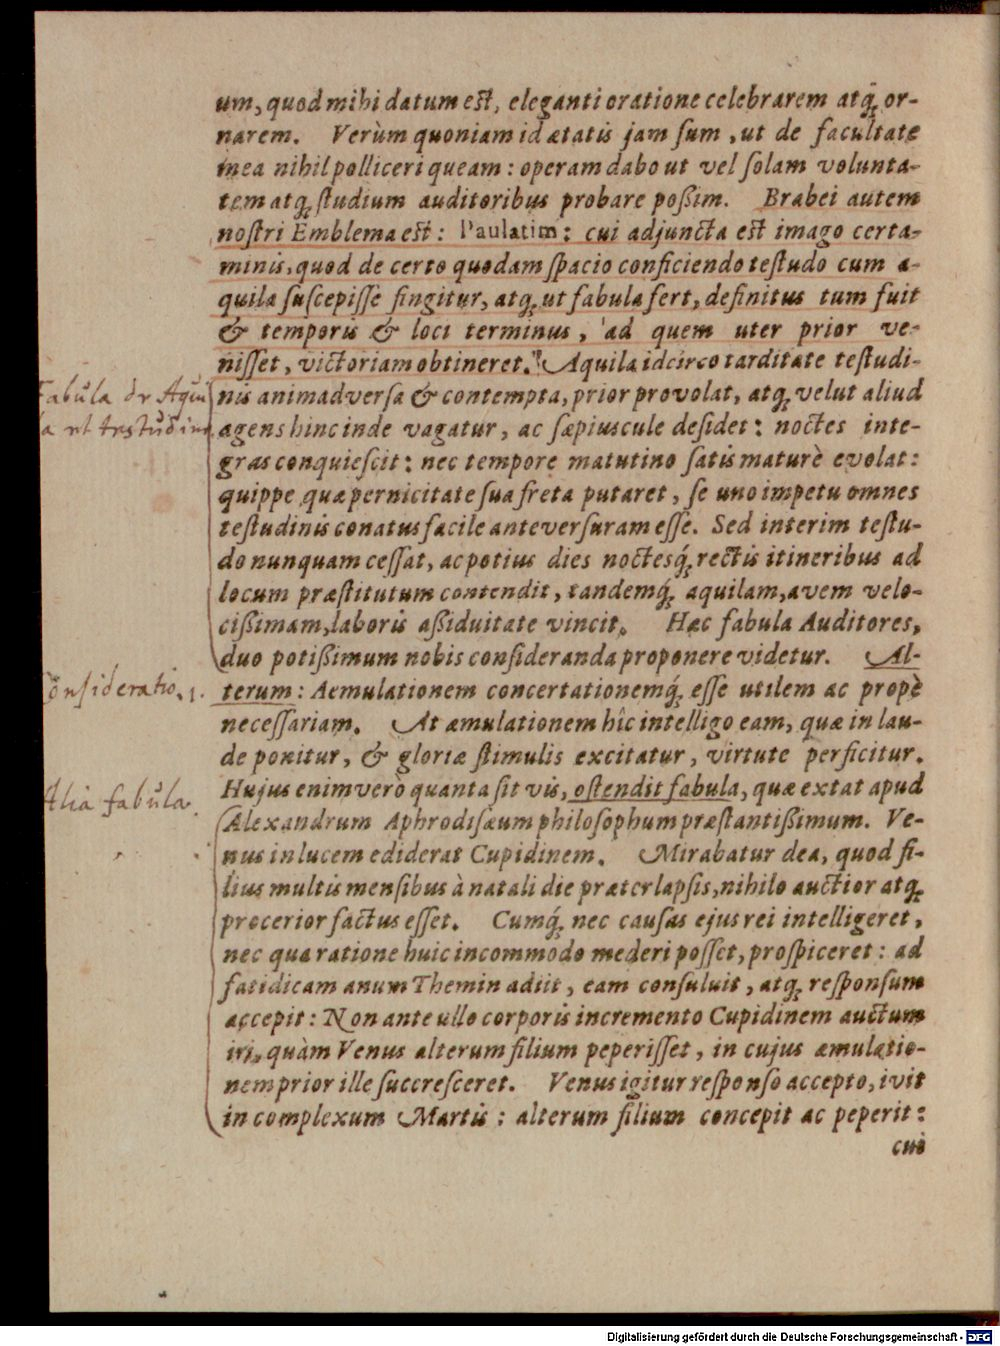 um, quod mihi datum est, eleganti oratione celebrarem atq́ꝫ or-
narem. Verùm quoniam id ætatis jam ſum, ut de facultate
mea nihil polliceri queam: operam dabo ut vel ſolam volunta-
tem atqꝫ ſtudium auditoribus probare poßim. Brabei autem
noſtri Emblema est: Paulatim: cui adjuncta est imago certa-
minis, quod de certo quodam ſpacio conficiendo teſtudo cum a-
quila ſuſcepiſſe fingitur, atqꝫ ut fabula fert, definitus tum fuit
& temporis & loci terminus, ad quem uter prior ve-
niſſet, victoriam obtineret. Aquila idcirco tarditate teſtudi-
Fabula de Aqui
nis animadverſa & contempta, prior provolat, atqꝫ velut aliud
la et testudine
agens hinc inde vagatur, ac ſæpiuscule deſidet: noctes inte-
gras conquieſcit: nec tempore matutino ſatis maturè evolat:
quippe quæ pernicitate ſua freta putaret, ſe uno impetu omnes
teſtudinis conatus facile anteverſuram eſſe. Sed interim teſtu-
do nunquam ceſſat, ac potius dies noctesq́ꝫ rectis itineribus ad
locum præſtitutum contendit, tandemq́ꝫ aquilam, avem velo-
cißimam, laboris aßiduitate vincit. Hæc fabula Auditores,
duo potißimum nobis conſideranda proponere videtur. Al-
Consideratio. 1.
terum: Aemulationem concertationemq́ꝫ eſſe utilem ac propè
neceſſariam. At æmulationem hîc intelligo eam, quæ in lau-
de ponitur, & gloriæ ſtimulis excitatur, virtute perficitur.
Hujus enimverò quanta ſit vis, oſtendit fabula, quæ extat apud
Alia fabula.
Alexandrum Aphrodiſæum philoſophum præſtantißimum. Ve-
nus in lucem ediderat Cupidinem. Mirabatur dea, quod fi-
lius multis menſibus à natali die præterlapſis, nihilo auctior atqꝫ
procerior factus eſſet. Cumq́ꝫ nec cauſas ejus rei intelligeret,
nec qua ratione huic incommodo mederi poſſet, proſpiceret: ad
fatidicam anum Themin adiit, eam conſuluit, atqꝫ reſponſum
accepit: Non ante ullo corporis incremento Cupidinem auctum
iri, quàm Venus alterum filium peperiſſet, in cujus æmulatio-
nem prior ille ſuccreſceret. Venus igitur reſponſo accepto, ivit
in complexum Martis: alterum filium concepit ac peperit:
cui
Digitalisierung gefördert durch die Deutsche Forschungsgemeinschaft - DFG